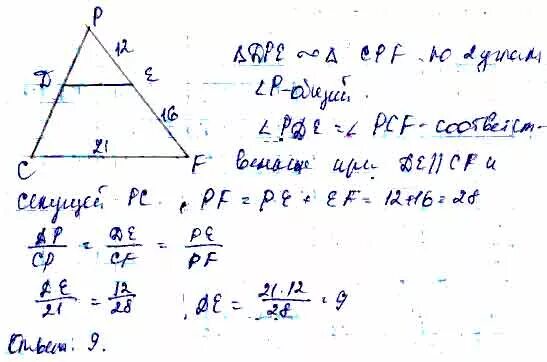 P
12
D
E
16
21
C
F
ΔDPE ~ Δ CPF по 2 углам
∠P-общий.
∠PDE = ∠PCF-соответст-
венные при DE||CF и
секущей PC. PF = PE + EF = 12+16 = 28
DP/CP = DE/CF = PE/PF
DE/21 = 12/28 ; DE = 21·12/28 = 9
Ответ: 9.